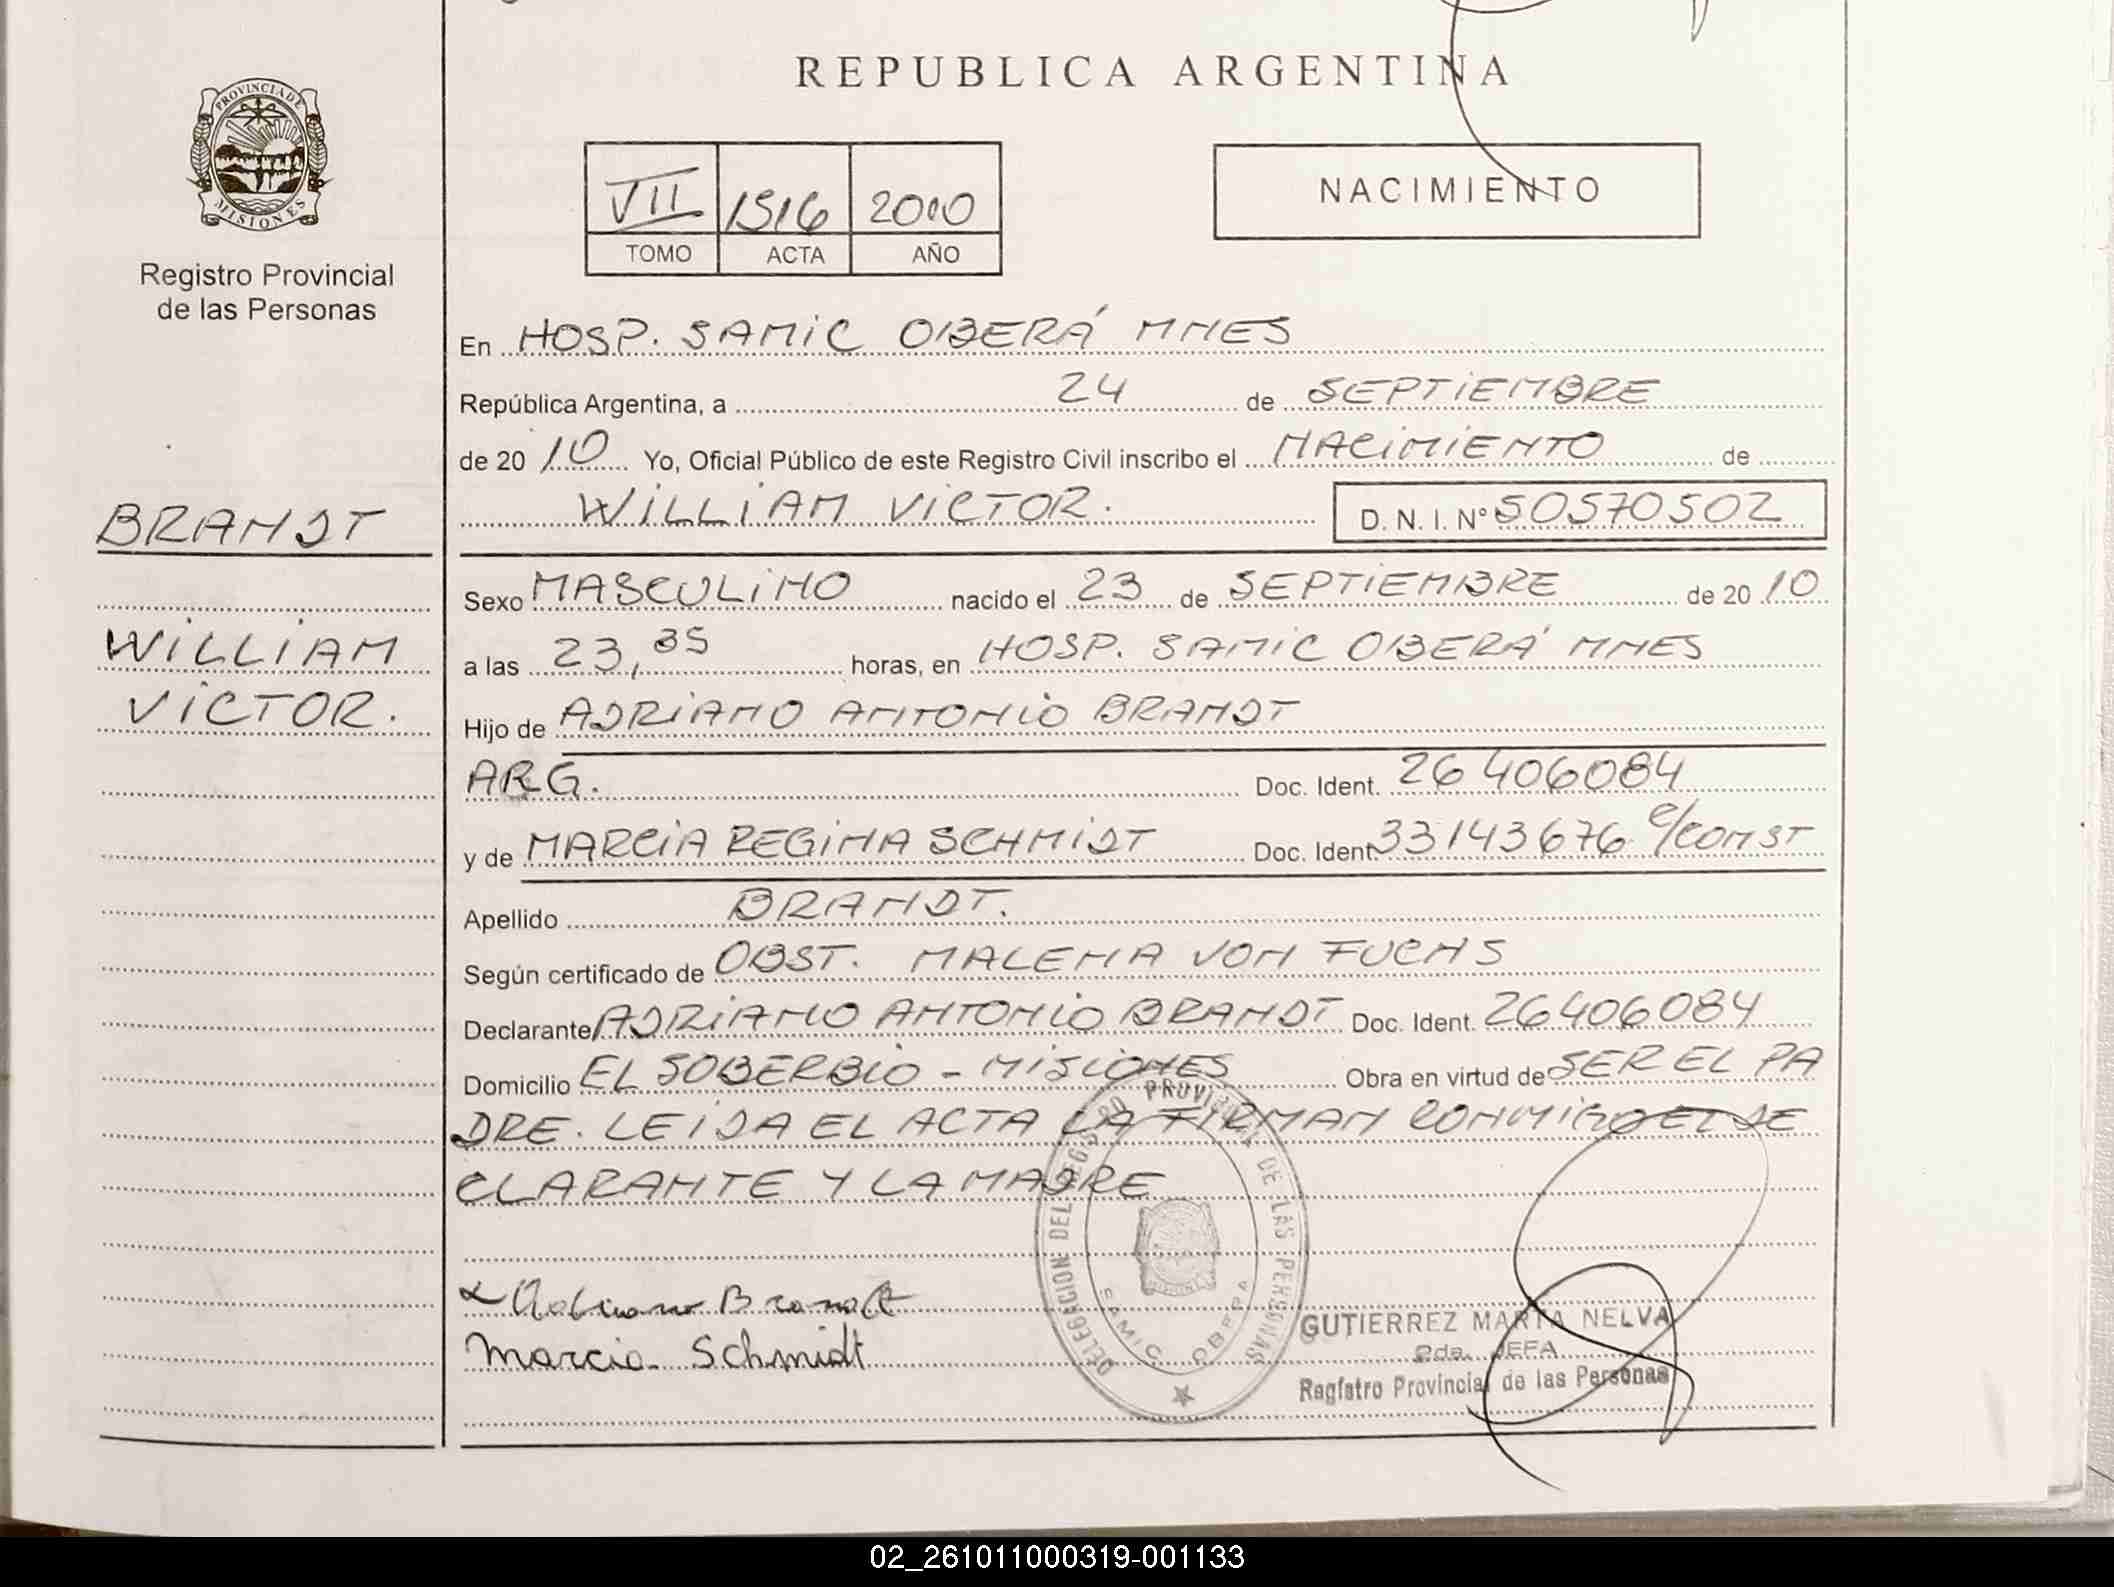 REPUBLICA ARGENTINA
PROVINCIA DE
MISIONES
Registro Provincial
de las Personas
VII 1516 2010
TOMO ACTA AÑO
NACIMIENTO
En HOSP. SAMIC OBERÁ MNES
República Argentina, a 24 de SEPTIEMBRE
de 20 10 Yo, Oficial Público de este Registro Civil inscribo el NACIMIENTO de
WILLIAM VICTOR. D. N. I. N° 50570502
BRANDT
WILLIAM
VICTOR.
Sexo MASCULINO nacido el 23 de SEPTIEMBRE de 20 10
a las 23,35 horas, en HOSP. SAMIC OBERÁ MNES
Hijo de ADRIANO ANTONIO BRANDT
ARG. Doc. Ident. 26406084
y de MARCIA REGINA SCHMIDT Doc. Ident. 33143676 C/CONST
Apellido BRANDT.
Según certificado de OBST. MALENA VON FUCHS
Declarante ADRIANO ANTONIO BRANDT Doc. Ident. 26406084
Domicilio EL SOBERBIO - MISIONES Obra en virtud de SER EL PA
DRE. LEIDA EL ACTA LA FIRMAN CONMIGO EL DE
CLARANTE Y LA MADRE
Adriano Brandt
Marcia Schmidt
DELEGACION DEL REGISTRO PROVINCIAL DE LAS PERSONAS
SAMIC OBERA
GUTIERREZ MARTA NELVA
2da. JEFA
Registro Provincial de las Personas
02_261011000319-001133